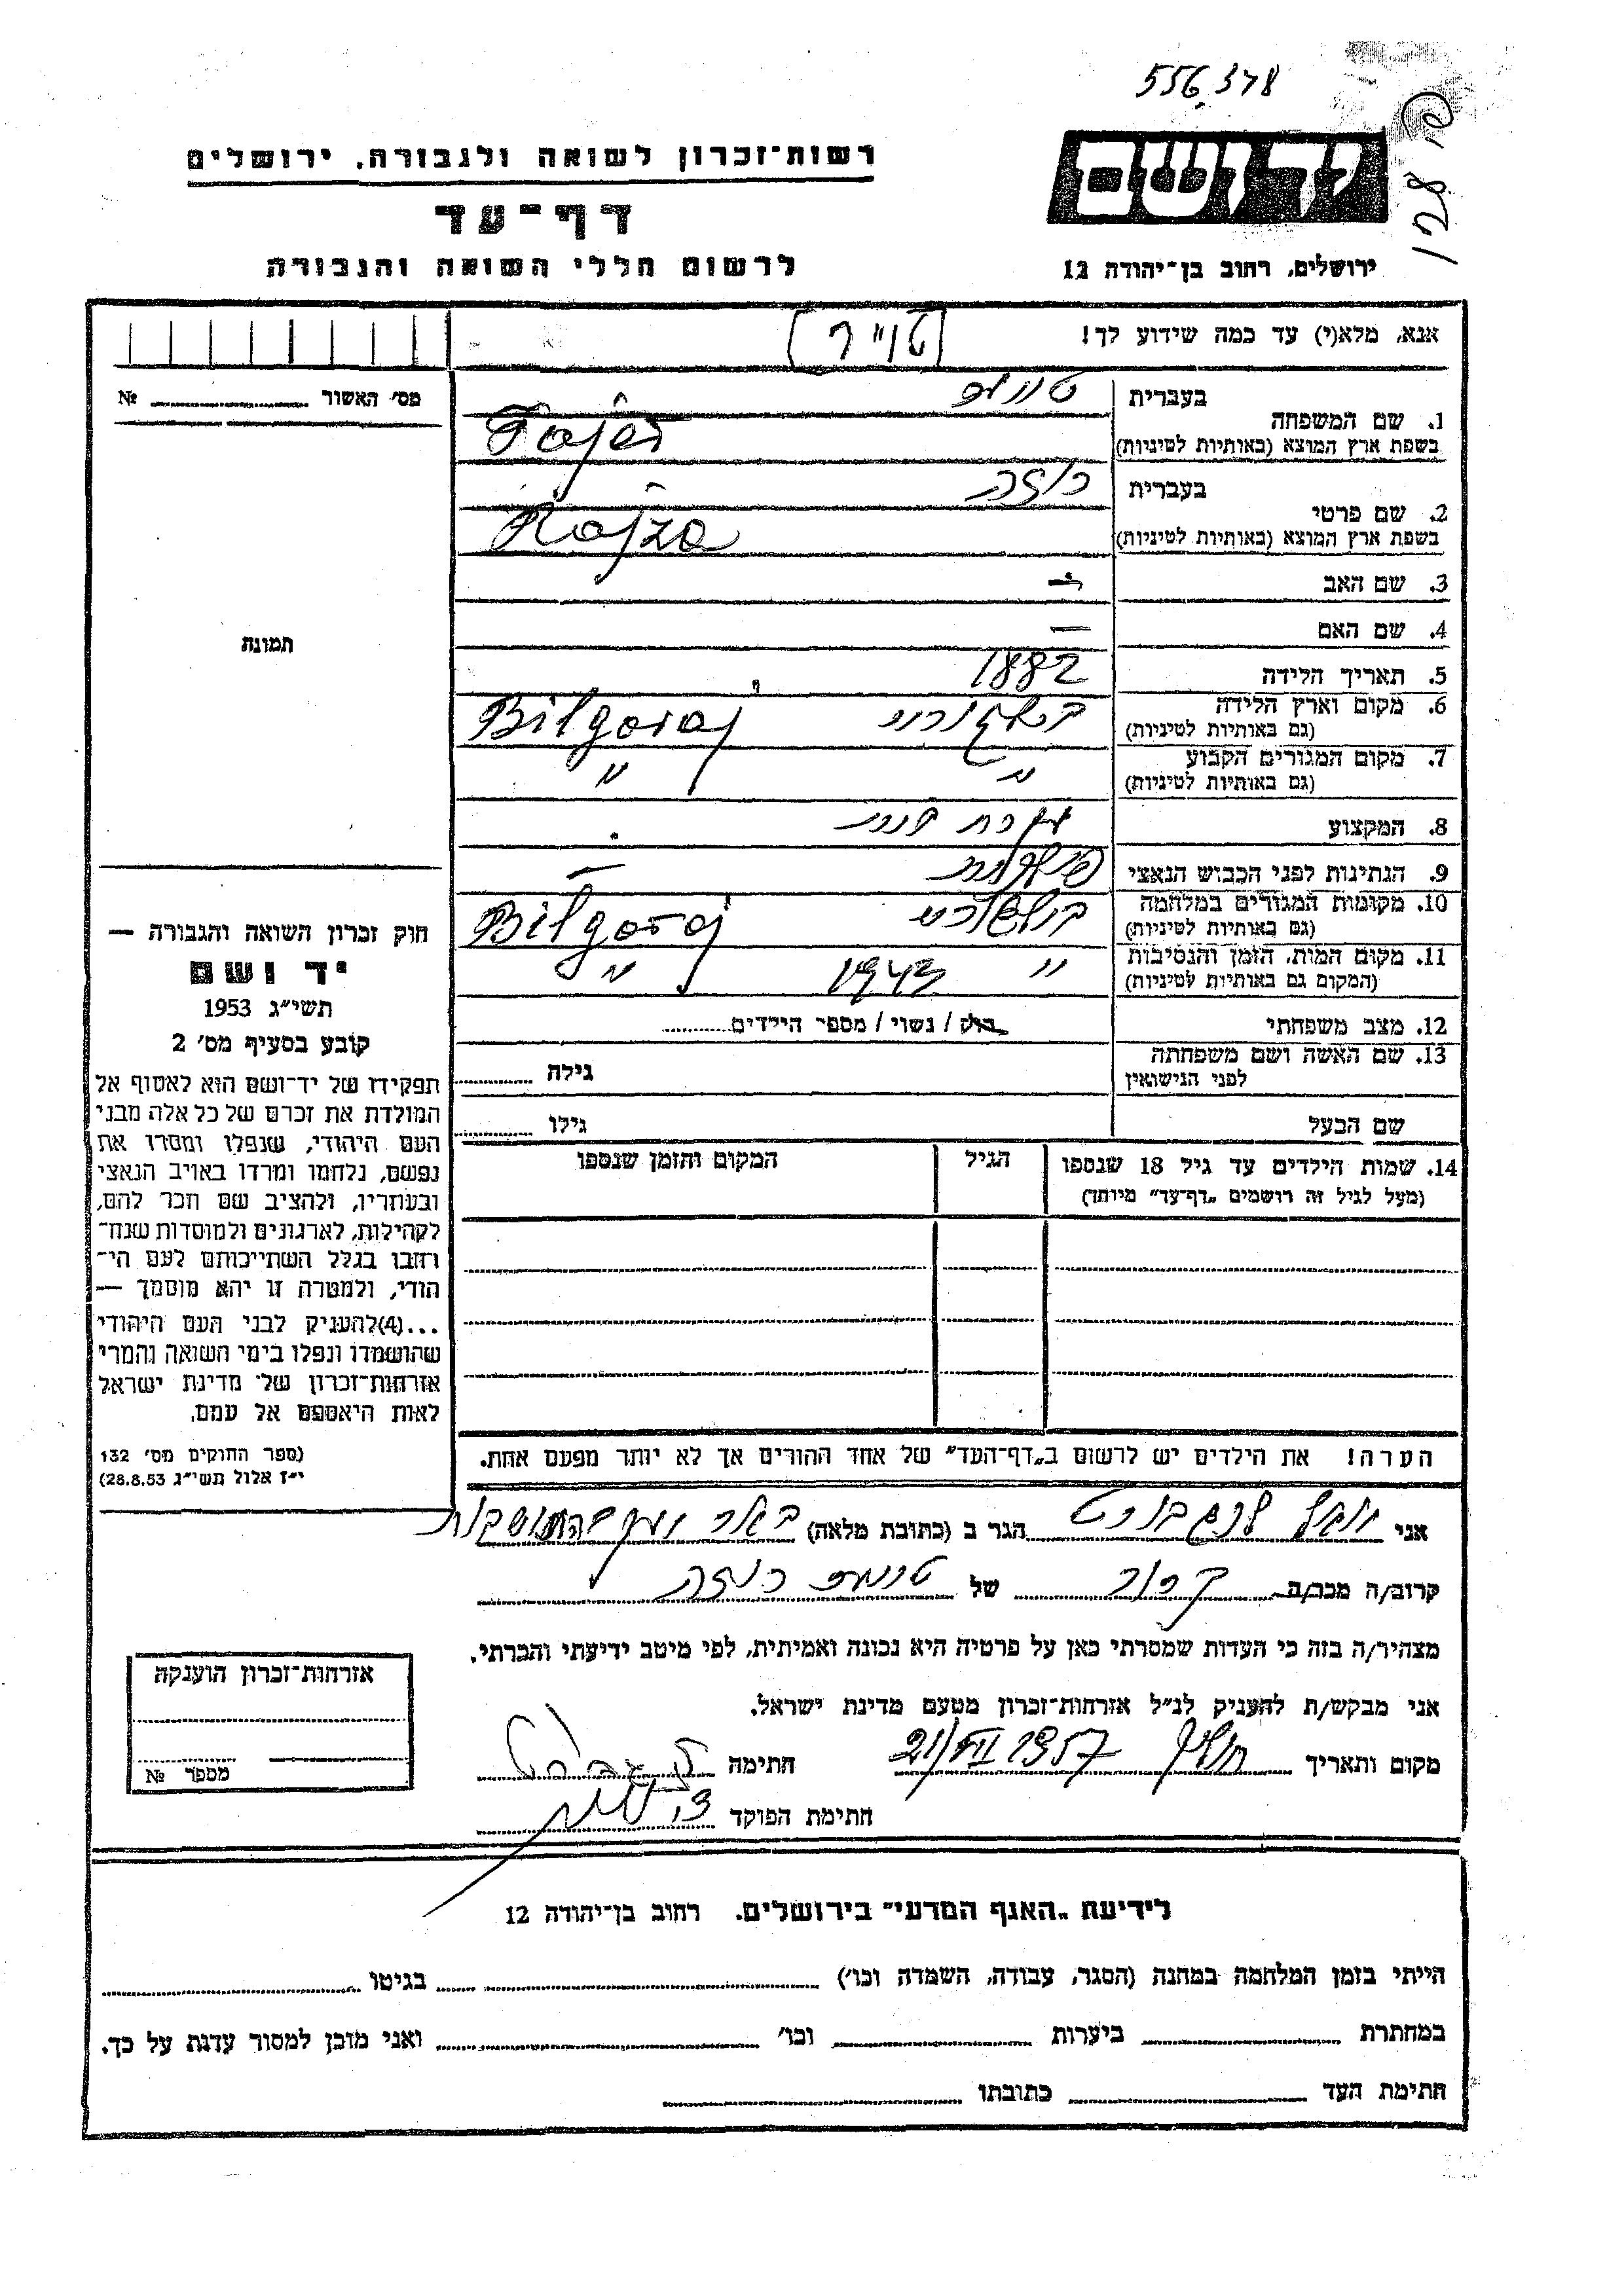 556378
רשות־זכרון לשואה ולגבורה, ירושלים
דף־עד
לרשום חללי השואה והגבורה
יד ושם
ירושלים, רחוב בן־יהודה 12
אנא, מלא(י) עד כמה שידוע לך!
(טוייר)
1. שם המשפחה
בעברית
בשפת ארץ המוצא (באותיות לטיניות)
Tajer
2. שם פרטי
בעברית
רוזה
בשפת ארץ המוצא (באותיות לטיניות)
Rajza
3. שם האב –
4. שם האם –
5. תאריך הלידה 1882
6. מקום וארץ הלידה
(גם באותיות לטיניות)
בילגורי Bilgoraj
7. מקום המגורים הקבוע
(גם באותיות לטיניות)
" "
8. המקצוע
9. הנתינות לפני הכבוש הנאצי
פולנית –
10. מקומות המגורים במלחמה
(גם באותיות לטיניות)
Bilgoraj
11. מקום המות, הזמן והנסיבות
(המקום גם באותיות לטיניות)
" 1943 "
12. מצב משפחתי
רוק / נשוי / מספר הילדים
13. שם האשה ושם משפחתה
לפני הנישואין
גילה
שם הבעל
גילו
14. שמות הילדים עד גיל 18 שנספו
(מעל לגיל זה רושמים „דף־עד" מיוחד)
הגיל
המקום והזמן שנספו
הערה! את הילדים יש לרשום ב„דף־העד" של אחד ההורים אך לא יותר מפעם אחת.
מס' האשור №
תמונה
חוק זכרון השואה והגבורה —
יד ושם
תשי"ג 1953
קובע בסעיף מס' 2
תפקידו של יד־ושם הוא לאסוף אל
המולדת את זכרם של כל אלה מבני
העם היהודי, שנפלו ומסרו את
נפשם, נלחמו ומרדו באויב הנאצי
ובעוזריו, ולהציב שם וזכר להם,
לקהילות, לארגונים ולמוסדות שנח־
רחבו בגלל השתייכותם לעם הי־
הודי, ולמטרה זו יהא מוסמך —
...(4)להעניק לבני העם היהודי
שהושמדו ונפלו בימי השואה והמרי
אזרחות־זכרון של מדינת ישראל
לאות היאספם אל עמם.
(ספר החוקים מס' 132
י"ז אלול תשי"ג 28.8.53)
אני
הגר ב (כתובת מלאה)
קרוב/ה מכר/ה קרוב של רוזה
מצהיר/ה בזה כי העדות שמסרתי כאן על פרטיה היא נכונה ואמיתית, לפי מיטב ידיעתי והכרתי.
אני מבקש/ת להעניק לנ"ל אזרחות־זכרון מטעם מדינת ישראל.
מקום ותאריך 21/VII 1957 חתימה
חתימת הפוקד
אזרחות־זכרון הוענקה
מספר №
לידיעת „האגף המדעי" בירושלים. רחוב בן־יהודה 12
הייתי בזמן המלחמה במחנה (הסגר, עבודה, השמדה וכו') בגיטו
במחתרת ביערות וכו' ואני מוכן למסור עדות על כך.
חתימת העד כתובתו